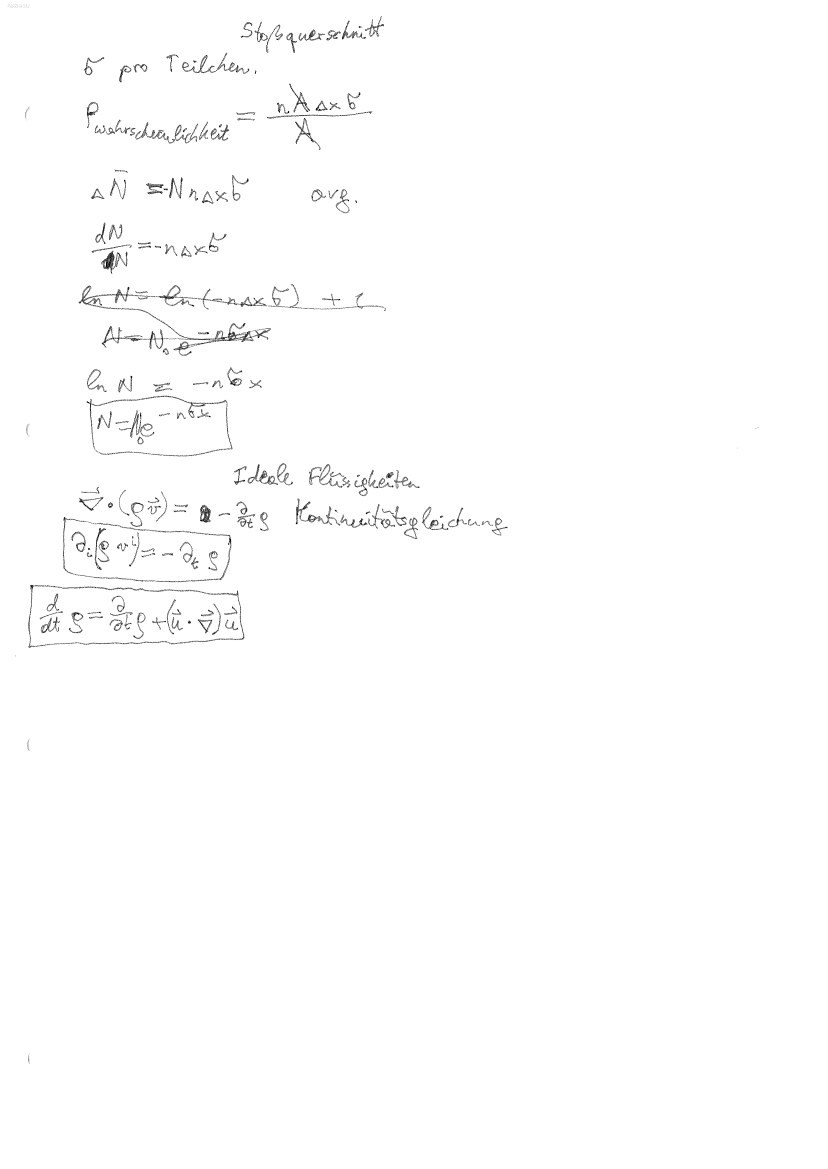 Stoßquerschnitt
σ pro Teilchen.
P_wahrscheinlichkeit = nAΔxσ / A
ΔN̄ = -NnΔxσ avg.
dN/N = -nΔxσ
ln N = ln(-nΔxσ) + c
N = N₀e^(-nσΔx)
ln N = -nσx
N = N₀e^(-nσx)
Ideale Flüssigkeiten
∇⃗·(ρv⃗) = -∂/∂t ρ Kontinuitätsgleichung
∂ᵢ(ρvⁱ) = -∂ₜρ
d/dt ρ = ∂/∂t ρ + (u⃗·∇⃗)u⃗